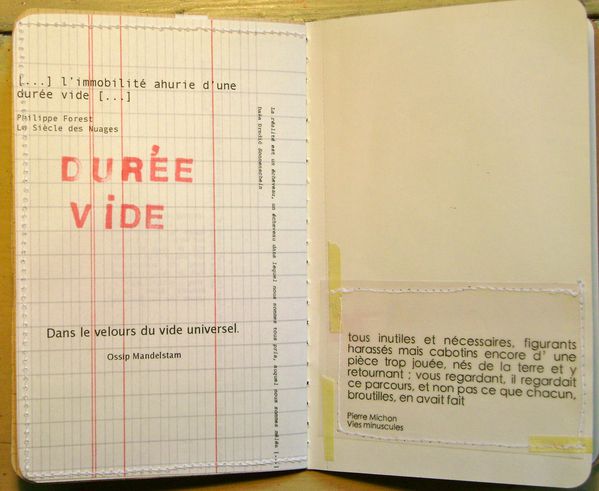 [...] l'immobilité ahurie d'une
durée vide [...]
Philippe Forest
Le Siècle des Nuages
DURÉE
VIDE
Dans le velours du vide universel.
Ossip Mandelstam
La réalité est un écheveau, un écheveau dans lequel nous sommes tous pris, auquel nous sommes mêlés [...]
tous inutiles et nécessaires, figurants
harassés mais cabotins encore d' une
pièce trop jouée, nés de la terre et y
retournant ; vous regardant, il regardait
ce parcours, et non pas ce que chacun,
broutilles, en avait fait
Pierre Michon
Vies minuscules